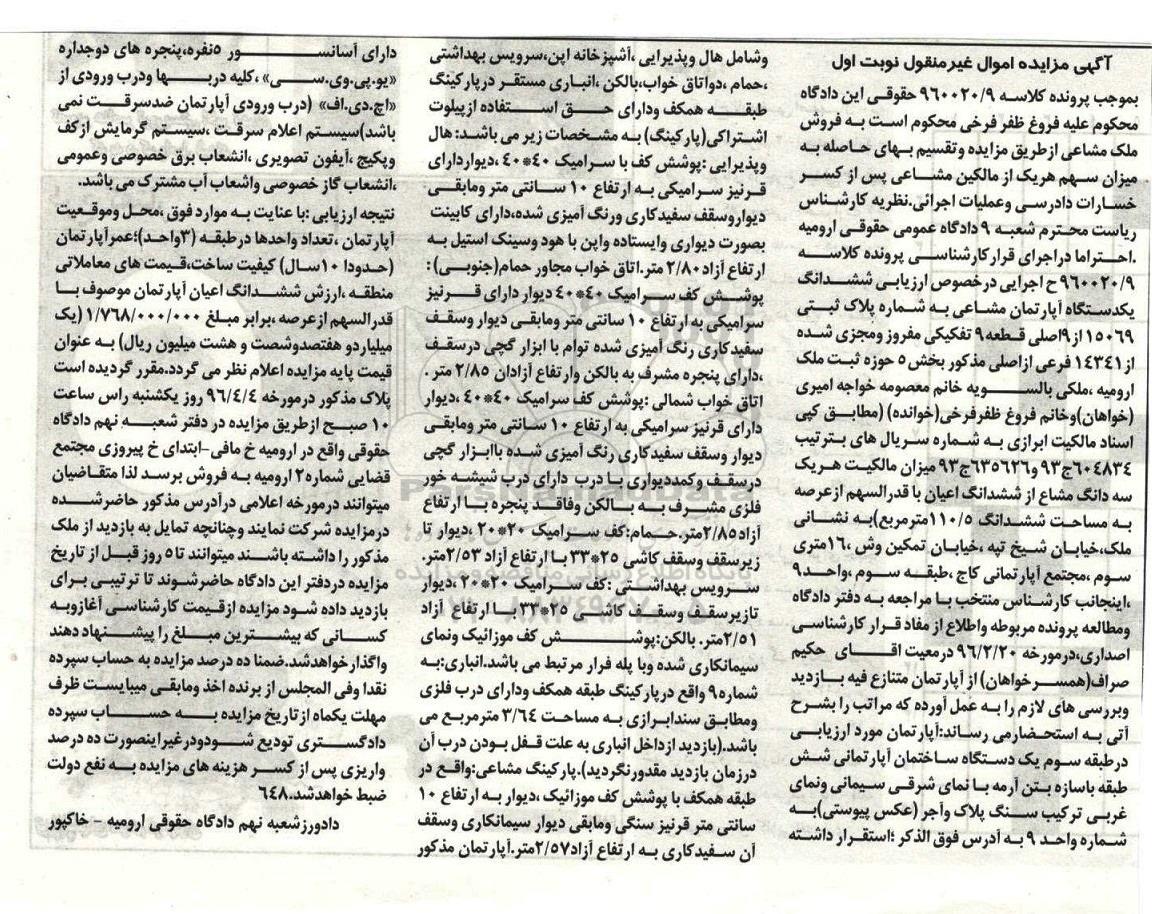 آگهی مزایده اموال غیرمنقول نوبت اول
بموجب پرونده کلاسه ۹۶۰۰۲۰/۹ حقوقی این دادگاه
محکوم علیه فروغ ظفر فرخی محکوم است به فروش
ملک مشاعی ازطریق مزایده وتقسیم بهای حاصله به
میزان سهم هریک از مالکین مشاعی پس از کسر
خسارات دادرسی وعملیات اجرائی.نظریه کارشناس
ریاست محترم شعبه ۹ دادگاه عمومی حقوقی ارومیه
.احتراما دراجرای قرارکارشناسی پرونده کلاسه
۹۶۰۰۲۰/۹ ح اجرایی درخصوص ارزیابی ششدانگ
یکدستگاه آپارتمان مشاعی به شماره پلاک ثبتی
۱۵۰۶۹ از۹اصلی قطعه۹ تفکیکی مفروز ومجزی شده
از ۱۴۳۴۱ فرعی ازاصلی مذکور بخش ۵ حوزه ثبت ملک
ارومیه ،ملکی بالسویه خانم معصومه خواجه امیری
(خواهان)وخانم فروغ ظفرفرخی(خوانده) (مطابق کپی
اسناد مالکیت ابرازی به شماره سریال های بترتیب
۶۰۴۸۳۴ج۹۳ و۶۳۵۶۲۶ج۹۳ میزان مالکیت هریک
سه دانگ مشاع از ششدانگ اعیان با قدرالسهم ازعرصه
به مساحت ششدانگ ۱۱۰/۵مترمربع)به نشانی
ملک،خیابان شیخ تپه ،خیابان تمکین وش ،۱۶متری
سوم ،مجتمع آپارتمانی کاج ،طبقه سوم ،واحد۹
،اینجانب کارشناس منتخب با مراجعه به دفتر دادگاه
ومطالعه پرونده مربوطه واطلاع از مفاد قرار کارشناسی
اصداری،درمورخه ۹۶/۲/۲۰ درمعیت اقای حکیم
صراف(همسرخواهان) از آپارتمان متنازع فیه بازدید
وبررسی های لازم را به عمل آورده که مراتب را بشرح
آتی به استحضارمی رساند:آپارتمان مورد ارزیابی
درطبقه سوم یک دستگاه ساختمان آپارتمانی شش
طبقه باسازه بتن آرمه با نمای شرقی سیمانی ونمای
غربی ترکیب سنگ پلاک وآجر (عکس پیوستی)به
شماره واحد ۹ به آدرس فوق الذکر ؛استقرار داشته
وشامل هال وپذیرایی ،آشپزخانه اپن،سرویس بهداشتی
،حمام ،دواتاق خواب،بالکن ،انباری مستقر درپارکینگ
طبقه همکف ودارای حق استفاده ازپیلوت
اشتراکی(پارکینگ) به مشخصات زیر می باشد: هال
وپذیرایی :پوشش کف با سرامیک ۴۰*۴۰ ،دیواردارای
قرنیز سرامیکی به ارتفاع ۱۰ سانتی متر ومابقی
دیواروسقف سفیدکاری ورنگ آمیزی شده،دارای کابینت
بصورت دیواری وایستاده واپن با هود وسینک استیل به
ارتفاع آزاد۲/۸۰ متر.اتاق خواب مجاور حمام(جنوبی) :
پوشش کف سرامیک ۴۰*۴۰ دیوار دارای قرنیز
سرامیکی به ارتفاع ۱۰ سانتی متر ومابقی دیوار وسقف
سفیدکاری رنگ آمیزی شده توام با ابزار گچی درسقف
،دارای پنجره مشرف به بالکن وارتفاع آزادان ۲/۸۵ متر .
اتاق خواب شمالی :پوشش کف سرامیک ۴۰*۴۰ ،دیوار
دارای قرنیز سرامیکی به ارتفاع ۱۰ سانتی متر ومابقی
دیوار وسقف سفیدکاری رنگ آمیزی شده باابزار گچی
درسقف وکمددیواری با درب دارای درب شیشه خور
فلزی مشرف به بالکن وفاقد پنجره با ارتفاع
آزاد۲/۸۵متر.حمام:کف سرامیک ۲۰*۲۰ ،دیوار تا
زیرسقف وسقف کاشی ۲۵*۳۳ با ارتفاع آزاد ۲/۵۳متر.
سرویس بهداشتی :کف سرامیک ۲۰*۲۰ ،دیوار
تازیرسقف وسقف کاشی ۲۵*۳۳ با ارتفاع آزاد
۲/۵۱متر. بالکن:پوشش کف موزائیک ونمای
سیمانکاری شده وبا پله فرار مرتبط می باشد.انباری:به
شماره۹ واقع درپارکینگ طبقه همکف ودارای درب فلزی
ومطابق سندابرازی به مساحت ۳/۶۴ مترمربع می
باشد.(بازدید ازداخل انباری به علت قفل بودن درب آن
درزمان بازدید مقدورنگردید).پارکینگ مشاعی:واقع در
طبقه همکف با پوشش کف موزائیک ،دیوار به ارتفاع ۱۰
سانتی متر قرنیز سنگی ومابقی دیوار سیمانکاری وسقف
آن سفیدکاری به ارتفاع آزاد۲/۵۷متر.آپارتمان مذکور
دارای آسانسور ۵نفره،پنجره های دوجداره
«یو.پی.وی.سی» ،کلیه دربها ودرب ورودی از
«اچ.دی.اف» (درب ورودی آپارتمان ضدسرقت نمی
باشد)سیستم اعلام سرقت ،سیستم گرمایش ازکف
وپکیج ،آیفون تصویری ،انشعاب برق خصوصی وعمومی
،انشعاب گاز خصوصی واشعاب آب مشترک می باشد.
نتیجه ارزیابی :با عنایت به موارد فوق ،محل وموقعیت
آپارتمان ،تعداد واحدها درطبقه (۳واحد)؛عمرآپارتمان
(حدودا ۱۰سال) کیفیت ساخت،قیمت های معاملاتی
منطقه ،ارزش ششدانگ اعیان آپارتمان موصوف با
قدرالسهم ازعرصه ،برابر مبلغ ۱/۷۶۸/۰۰۰/۰۰۰ (یک
میلیاردو هفتصدوشصت و هشت میلیون ریال) به عنوان
قیمت پایه مزایده اعلام نظر می گردد.مقرر گردیده است
پلاک مذکور درمورخه ۹۶/۴/۴ روز یکشنبه راس ساعت
۱۰ صبح ازطریق مزایده در دفتر شعبه نهم دادگاه
حقوقی واقع در ارومیه خ مافی-ابتدای خ پیروزی مجتمع
قضایی شماره۲ ارومیه به فروش برسد لذا متقاضیان
میتوانند درمورخه اعلامی درآدرس مذکور حاضرشده
درمزایده شرکت نمایند وچنانچه تمایل به بازدید از ملک
مذکور را داشته باشند میتوانند تا ۵ روز قبل از تاریخ
مزایده دردفتر این دادگاه حاضرشوند تا ترتیبی برای
بازدید داده شود مزایده ازقیمت کارشناسی آغازوبه
کسانی که بیشترین مبلغ را پیشنهاد دهند
واگذارخواهدشد.ضمنا ده درصد مزایده به حساب سپرده
نقدا وفی المجلس از برنده اخذ ومابقی میبایست ظرف
مهلت یکماه ازتاریخ مزایده به حساب سپرده
دادگستری تودیع شودودرغیراینصورت ده درصد
واریزی پس از کسر هزینه های مزایده به نفع دولت
ضبط خواهدشد.۶۴۸
دادورزشعبه نهم دادگاه حقوقی ارومیه – خاکپور